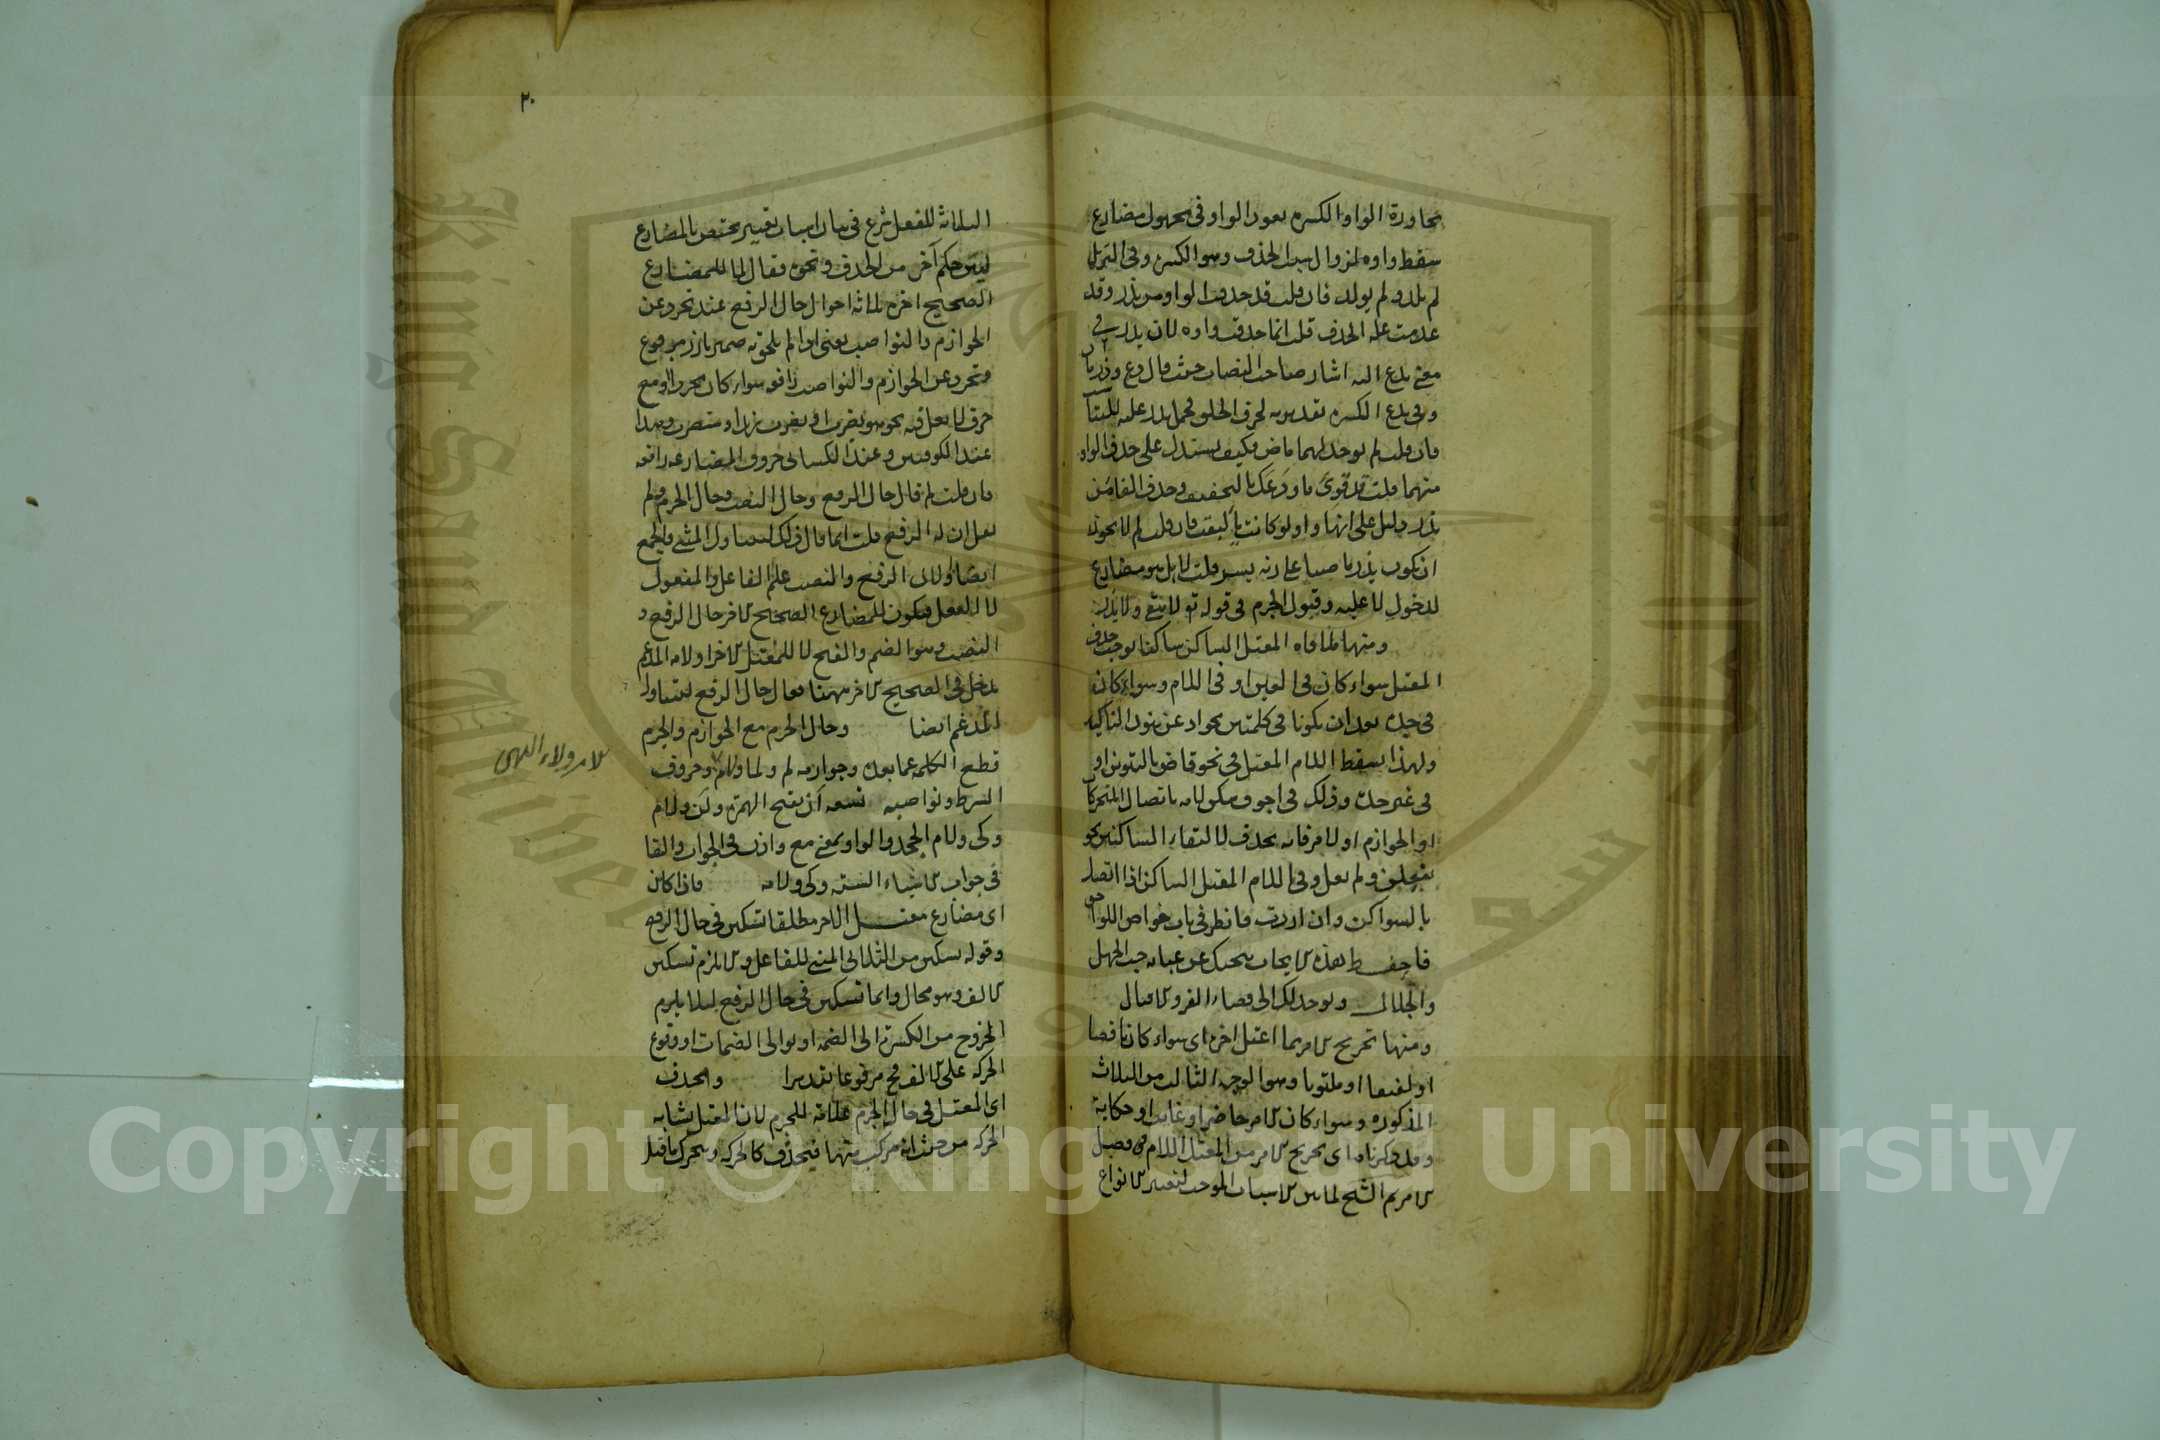 مجاورة الواو الكسره يعود الواو فى مجهول مضارع
سقط واوه لزوال سبب الحذف وهو الكسر وفى التنزيل
لم يلد ولم يولد فان قلت قد حذف الواو من يذر وقد
عدمت علة الحذف قلت انما حذف واوه لان يذر فى
معنى يدع اليه اشار صاحب النصاب حيث قال دع وذر
وفى يدع الكسره تقديريه لحرف الحلق فحمل يذر عليه
فان قلت لم يوجد لهما ماض فكيف يستدل على حذف الواو
منهما قلت قد قرئ ما ودعك بالتخفيف وحذف الفا من
يذر دليل على انها واو لو كانت ياء لبقت فان قلت لم لا يجوز
ان يكون يذر ماضيا على زنه يسر قلت لا بل هو مضارع
لدخول لا عليه وقبول الجزم فى قوله تع لا تبقى ولا تذر
ومنها ملاقاة المعتل الساكن ساكنا يوجب حذف
المعتل سواء كان فى العين او فى اللام وسواء كان
فى حده بعد ان يكونا فى كلمتين نحو ادعن بنون التاكيد
ولهذا يسقط اللام المعتل فى نحو قاض بالتنوين او
فى غير حده وذلك فى اجوف سكن لامه باتصال المتحركات
او الجوازم او لامر فانه يحذف لالتقاء الساكنين نحو
ولم يعل وفى اللام المعتل الساكن اذا اتصل
بالسواكن وان اردت فانظر فى باب خواص اللواحق
فاحفظ هذه الابحاث
ومنها تخريج الامر مما اعتل اخره اى سواء كان ناقصا
او لفيفا او ملتويا وهو الوجه الثالث من الثلاث
المذكورة وسواء كان الامر حاضرا او غائب او حكاية
وقد ذكرناه اى تخريج الامر من المعتل اللام فى فصل
الامر ثم الشيخ لما بين الاسباب الموجب لتغيير الانواع
٣٠
الثلاثة للفعل شرع فى بيان اسباب تغيير يختص بالمضارع
ليبين حكم آخر من الحذف ونحوه فقال لما للمضارع
الصحيح اخره ثلاثة احوال حال الرفع عند تجرده عن
الجوازم والنواصب يعنى اذا لم يلحق به ضمير بارز مرفوع
وتجرده عن الجوازم والنواصب رافعه سواء كان مجردا او مع
حرف لا يعمل فيه نحو هو يضرب او يضرب زيد او سيضرب وهذا
عند الكوفيين وعند الكسائى حروف المضارعه رافعه
فان قلت لم قال حال الرفع وحال النصب وحال الجزم ولم
يقل ان له الرفع قلت انما قال ذلك ليتناول المثنى والجمع
ايضا ولان الرفع والنصب علم الفاعل والمفعول
لا الفعل فيكون للمضارع الصحيح الاخر حال الرفع و
النصب وهو الضم والفتح لا للمعتل الاخر اولا والمدغم
يدخل فى الصحيح الاخر ههنا فقال حال الرفع ليتناول
المدغم ايضا وحال الجزم مع الجوازم والجزم
قطع الكلمة عما بعده وجوازمه لم ولما ولام وحروف
لامر ولاء النهى
الشرط ونواصبه تسعه ان بفتح الهمزة ولن ولام
وكى ولام الجحد والواو بمعنى مع واذن فى الجواب والفا
فى جواب الاشياء الستة وكى ولامه فاذا كان
اى مضارع معتل اللام مطلقا تسكين فى حال الرفع
وقوله يسكن من الثلاثى المبنى للفاعل والا يلزم تسكين
الالف وهو محال وانما تسكين فى حال الرفع لئلا يلزم
الخروج من الكسرة الى الضمه او توالى الضمات او وقوع
الحركة على الالف مرفوعا تقديرا ويحذف
اى المعتل فى حال الجزم علامة للجزم لان المعتل يشابه
الحركة من حيث انه مركب منها فيحذف كالحركة ويحرك ما قبل
Copyright © King Saud University